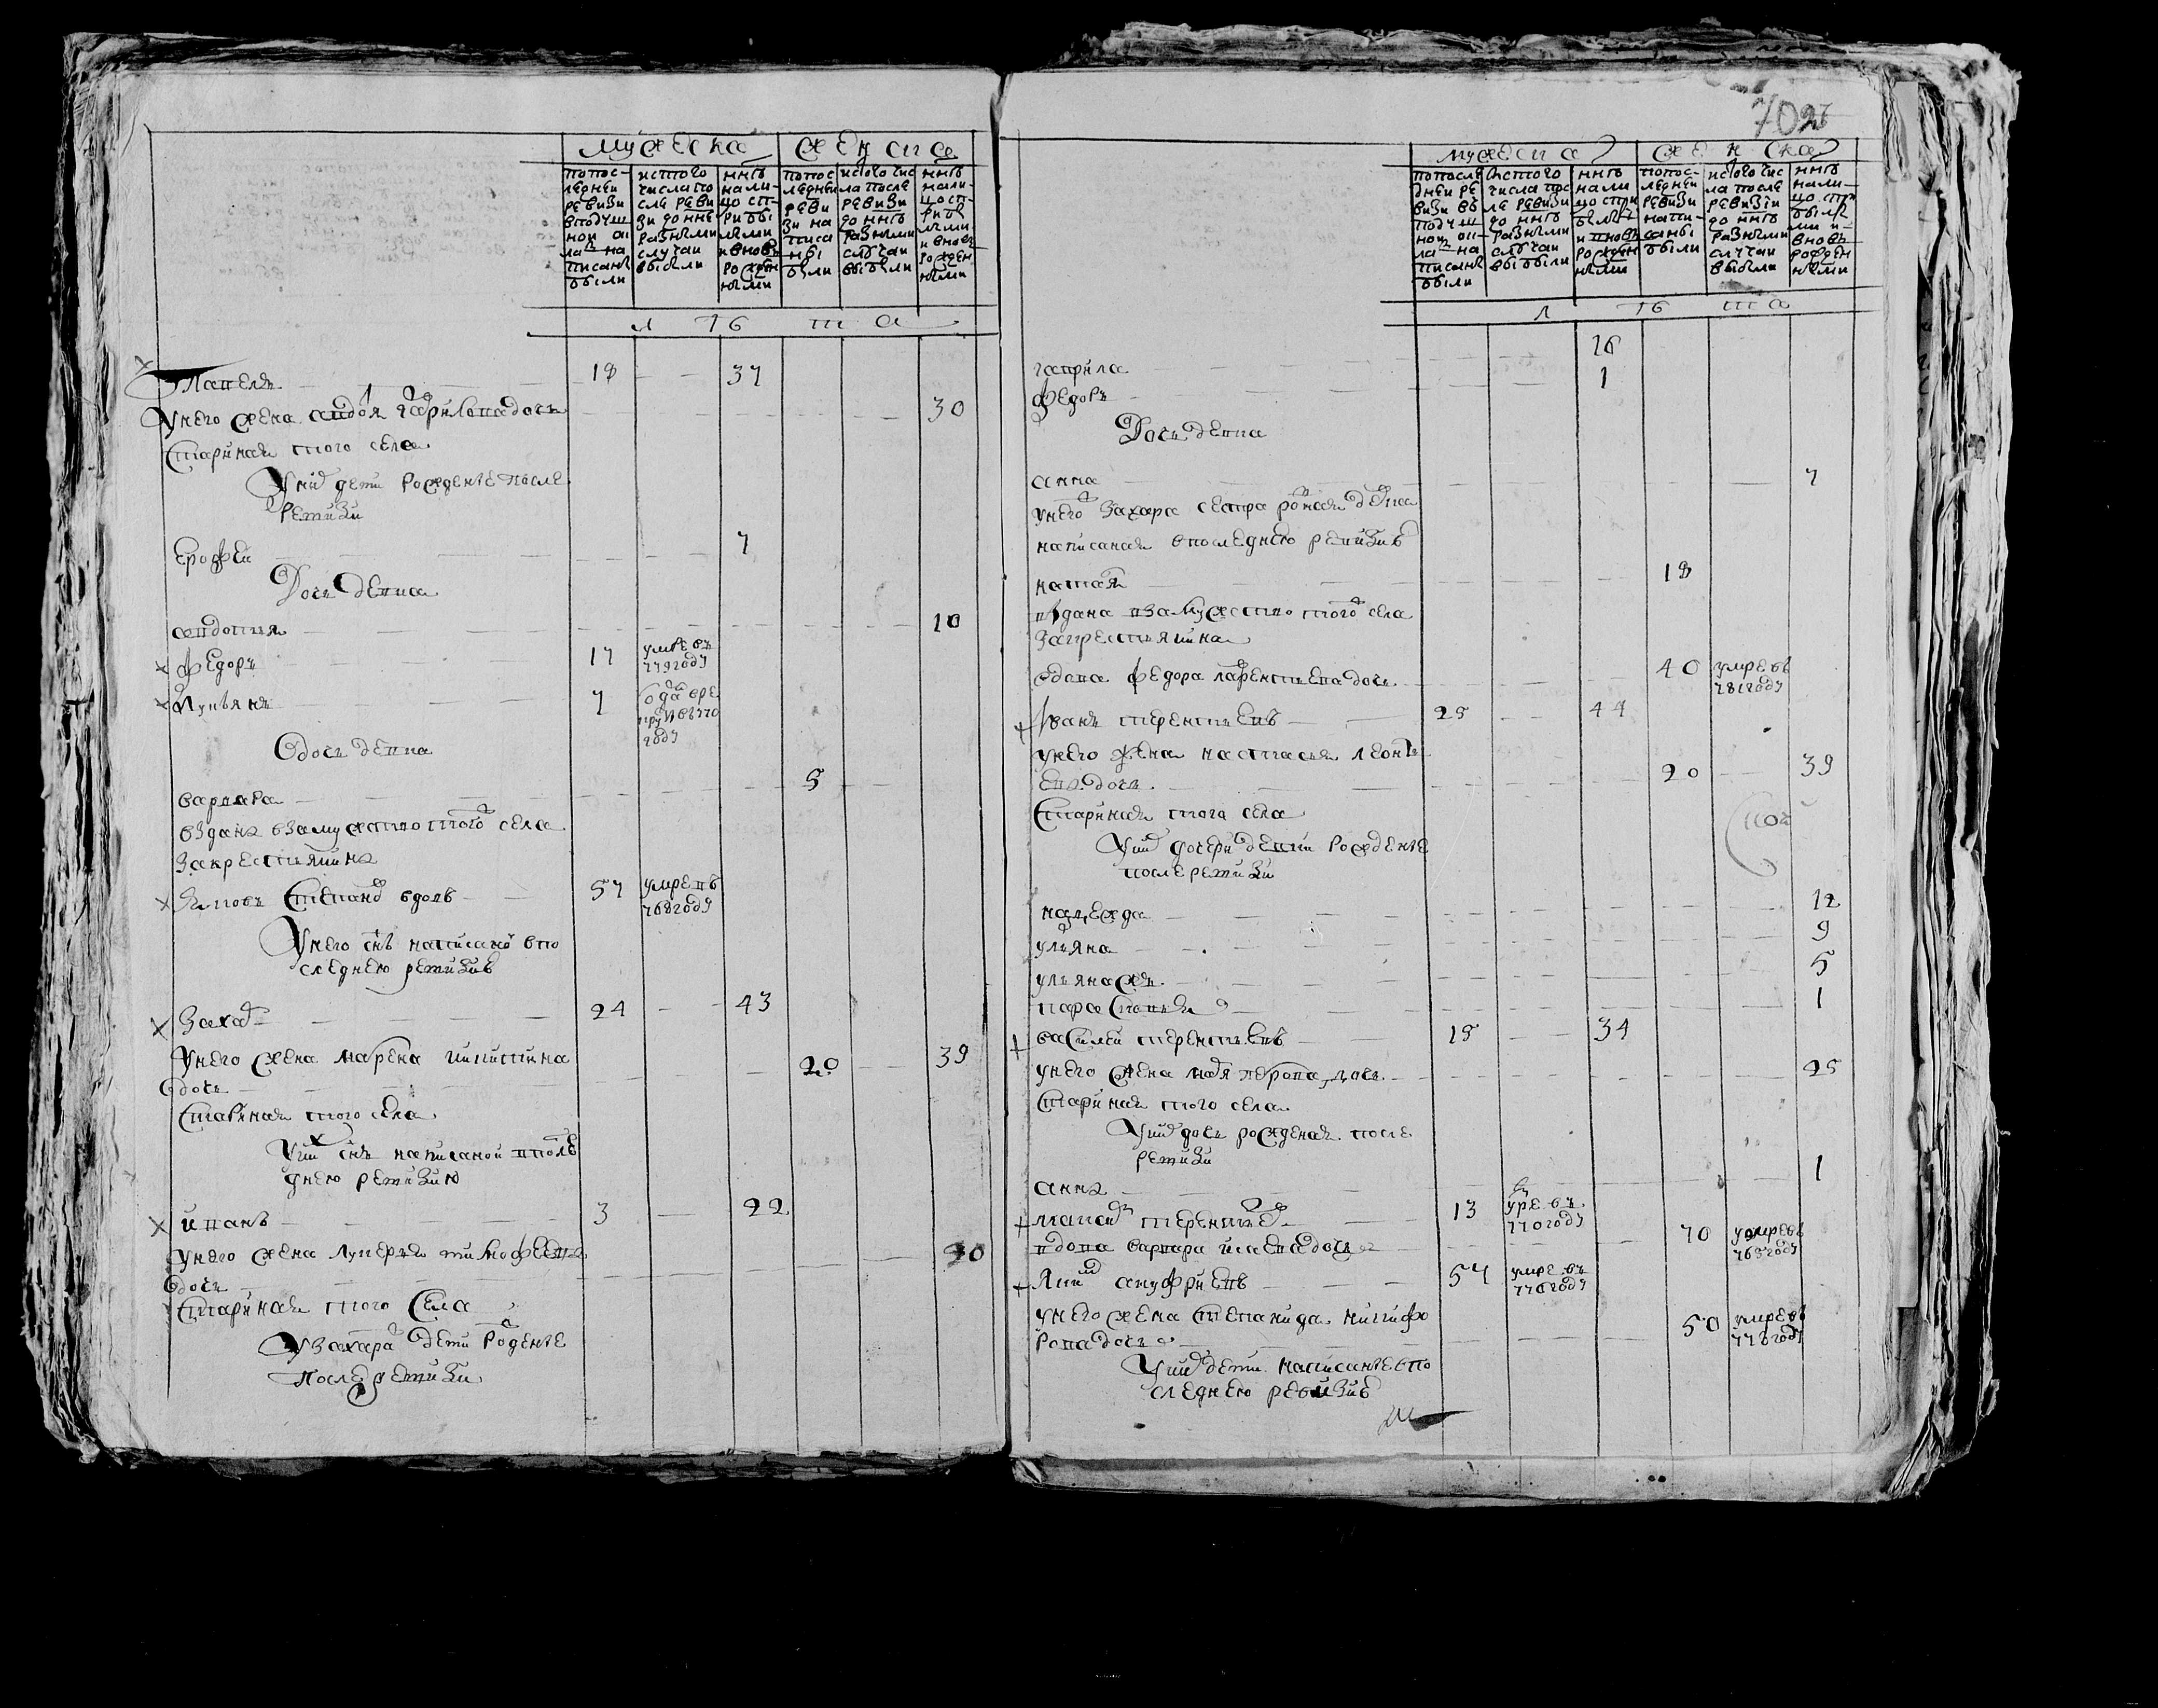 мужеска
женска
попос-
ледней
ревизи
вподуш
ной оп
ла на
писаны
были
истого
числа по
сле реви
зи до нне
разными
случаи
выбыли
ннѣ
нали-
цо ст-
рибы
лыми
ивновь
рожден
ными
попос
ледней
реви
зи на
писа
ны
были
истого чис
ла после
ревизи
до ннѣ
разными
случаи
выбыли
ннѣ
нали-
цо ст-
рибы
лыми
ивновь
рожден
ными
лѣта
Павелъ 18 37
унего жена авдотя гаврилова дочь 30
старинная того села
Уних дети рожденые после
ревизи
ерофеи 7
Дочь девка
авдотия 10
федоръ 17 умре въ
779 году
Лукьянъ 7
году
Адочь девка
варвара 5
выдана взамужство того села
закрестьянина
Яковъ Степановъ вдовъ 57 умре въ
768 году
Унего снъ написаной впо
следнею ревизию
Захаръ 24 43
Унего жена марена никитина
дочь 20 39
Старинная того села
Уних снъ написаной впосле
днею ревизию
иванъ 3 22
Унего жена лукерья тимофеева
дочь 30
Старинная того Села
У захара дети рожденые
после ревизи
702
мужеска
женска
попосле
дней ре
визи въ
подуш
ной оп-
ла на
писаны
были
истого
числа пос
ле ревизи
до ннѣ
разными
случаи
выбыли
ннѣ
нали
цо при
былы
и вновь
рожден
ными
попос-
ледней
ревизи
напи-
саны
были
истого чис
ла после
ревизи
до ннѣ
разными
случаи
выбыли
ннѣ
нали-
цо при
былы
ми и-
вновь
рожден
ными
лѣта
гаврила 16
федоръ 1
Дочь девка
анна 7
унего захара сестра роная девка
написаная впоследнею ревизию
наталя 18
выдана взамужество того села
закрестьянина
вдова федора лаврентьева дочь 40 умре въ
781 году
Иванъ терентьевъ 25 44
унего жена настасья леонтье
ева дочь 20 39
Старинная того села
Уних дочери девки рожденые
после ревизи
надежда 12
ульяна 9
ульянажъ 5
парасковья 1
василеи терентьевъ 15 34
унего жена 25
Старинная того села
Уних дочь рожденая после
ревизи
анна 1
терентьевъ 13 умре въ
770 году
вдова варвара исаева дочь 70 умре въ
769 году
ануфриевъ 57 умре въ
776 году
унего жена степанида никифо
рова дочь 50 умре въ
778 году
Уних дети написаные впо
следнею ревизию